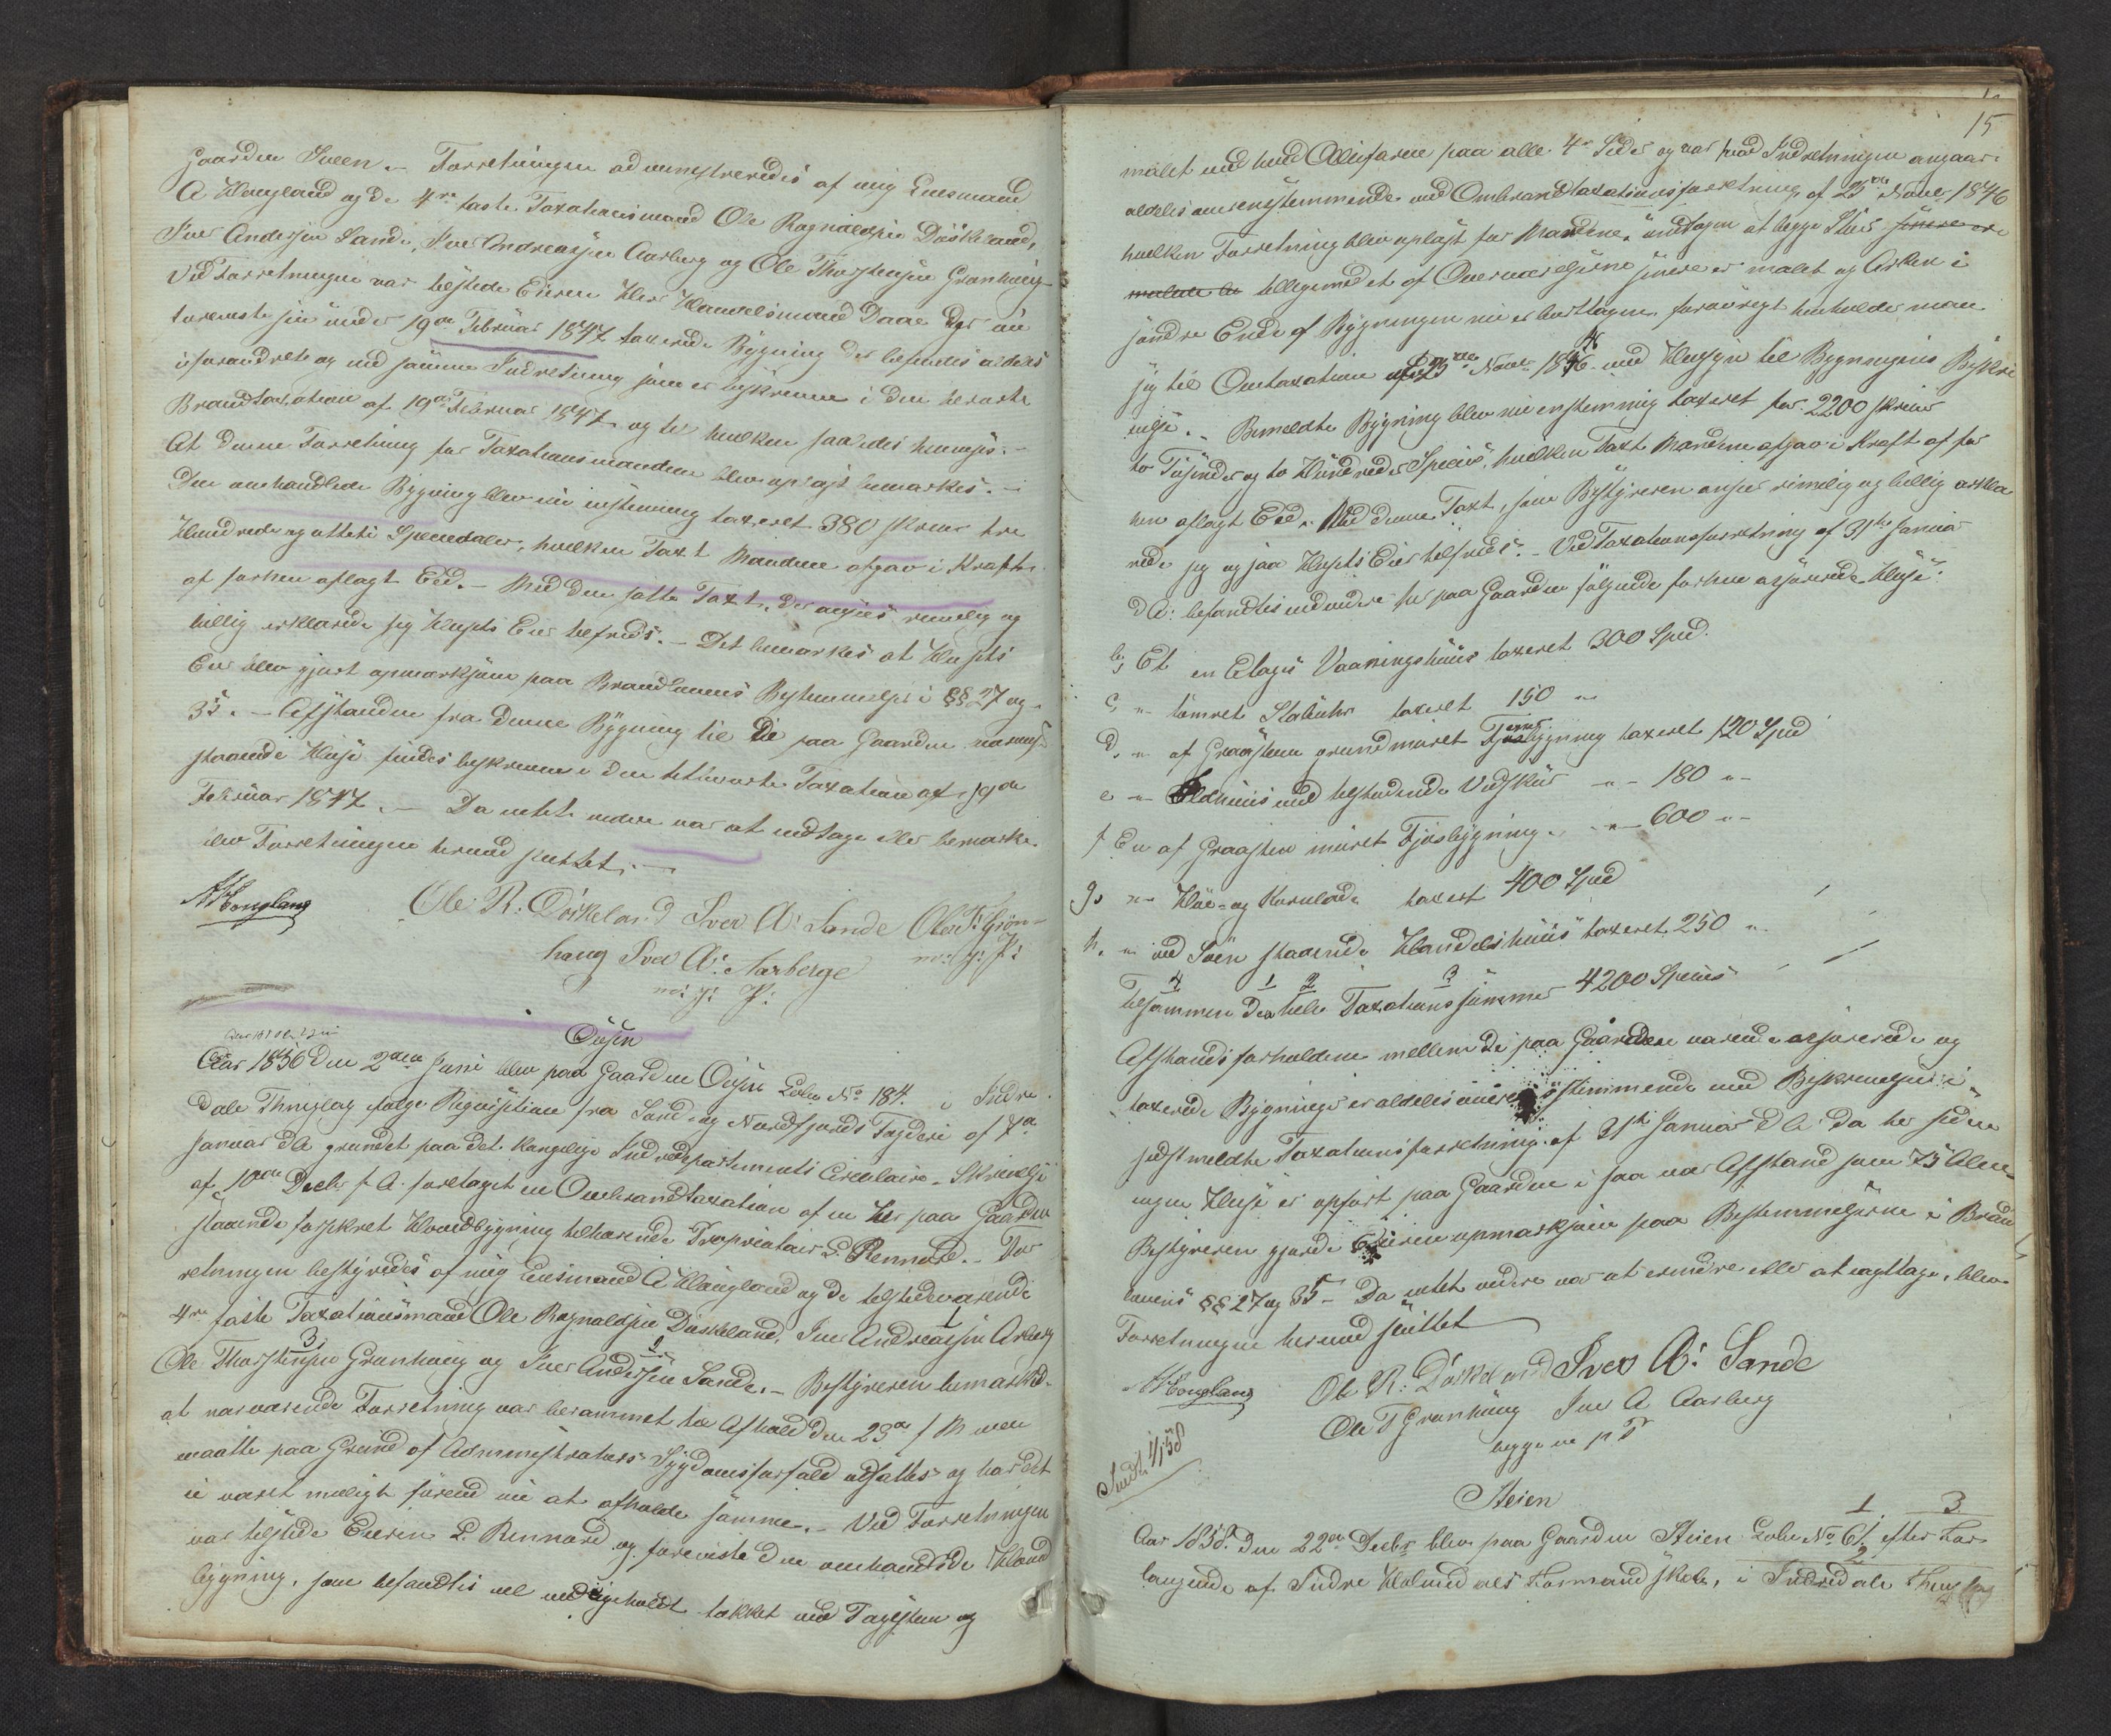 Gaarden Sveen. – Forretningen administreredes af mig Lensmand
A Hougland og de 4re faste Taxationsmænd Ole Ragnaldsen Döskeland,
Iver Andersen Sande, Iver Andreassen Aarberg og Ole Thorstensen Grønhaug
Ved Forretningen var tilstede Eieren Herr Handelsmand Daae der nu
foreviste sin under 19de Februar 1847 taxerede Bygning der befindes aldeles
uforandret og med samme Indretning som er beskreven i den berørte
Brandtaxation af 19de Februar 1847 og til hvilken saaledes henvises. –
At denne Forretning for Taxationsmændene blev oplæst bemærkes. –
Den omhandlede Bygning blev nu enstemmig taxeret 380 skriver tre
Hundrede og otteti Speciedaler, hvilken Taxt Mændene afgav i Kraft
af forhen aflagt Eed. – Med den satte Taxt, der ansees rimelig og
billig erklærede sig Husets Eier tilfreds. – Det bemærkes at Husets
Eier blev gjort opmærksom paa Brandlovens Bestemmelse i §§ 27 og
35. – Afstanden fra denne Bygning til de paa Gaarden nærmest
staaende Huse findes beskreven i den titberørte Taxation af 19de
Februar 1847. – Da intet videre var at iagttage eller bemærke
blev Forretningen hermed sluttet. –
AHougland
Ole R: Döskeland Iver A: Sande Ole T: Grön-
haug Iver A: Aarberge m: p: P:
m: p: P:
Öusen
Aar 1856 den 2den Juni blev paa Gaarden Öusen Löbe No 184 i Indre
dals Thinglag ifølge Reqvisition fra Sönd- og Nordfjords Fogderi af 7de
Januar d A grundet paa det Kongelige Indredepartements Circulaire-Skrivelse
af 10de Decbr f. A. foretaget en Ombrandtaxation af en her paa Gaarden
staaende assureret Hovedbygning tilhørende Proprietair L. Rennord. – For
retningen bestyredes af mig Lensmand A Hougland og de tilstedeværende
4re faste Taxationsmænd Ole Ragnaldsen Döskeland, Iver Andreassen Arberg
Ole Thorstensen Grønhaug og Iver Andersen Sande. – Bestyreren bemærkede
at nærværende Forretning var berammet til Afhold den 29de f M men
maatte paa Grund af Administrators Sygdomsforfald udsættes og har det
ei været muligt førend nu at afholde samme. – Ved Forretningen
var tilstede Eieren L. Rennord og foreviste den omhandlede Hoved
bygning, som befandtes vel vedligeholdt tækket med Tagsteen og
15
malet med hvid Oliefarve paa alle 4re Sider og var hvad Indretningen angaar
aldeles overensstemmende med Ombrandtaxationsforretning af 25de Novbr 1846
hvilken Forretning blev oplæst for Mændene, undtagen at begge
tilligemed et af Overværelserne senere er malet og Arken i
søndre Ende af Bygningen nu er borttagen. forøvrigt henholder man
sig til Omtaxation af 25de Novbr 1846 med Hensyn til Bygningens Beskri
velse. – Bemeldte Bygning blev nu enstemmig taxeret for 2200 skriver
to Tusinde og to Hundrede Species, hvilken Taxt Mændene afgav i Kraft af for
hen aflagt Eed. Med denne Taxt, som Bestyreren anser rimelig og billig erklæ
rede sig ogsaa Husets Eier tilfreds. – Ved Taxationsforretning af 31te Januar
d A. befandtes endvidere her paa Gaarden følgende forhen assurerede Huse:
b, Et en Etages Vaaningshuus taxeret 300 Spd.
c, " tömret Stabuhr taxeret 150 "
d, " af Graasteen grundmuret bygning taxeret 120 Spd
e " Ildhuus med tilstødende Vedskur " – 180 "
f En af Graasten muret Fjøsbygning " – 600 "
g, " Höe- og Kornlade taxert 400 Spd
h, " ved Söen staaende Handelshuus taxeret 250 "
4 1 2 3
Tilsammen den hele Taxationssummer 4200 Species
Afstandsforholdene mellem de paa Gaarden værende assurerede og
taxerede Bygninger er aldeles overensstemmende med Beskrivelsen i
sidstmeldte Taxationsforretning af 31te Januar d A. da her siden
ingen Huse er opført paa Gaarden i saa nær Afstand som 75 Alen.
Bestyreren gjorde Eieren opmærksom paa Bestemmelserne i Brand
lovens §§ 27 og 35 – Da intet videre var at erindre eller at iagttage, blev
Forretningen hermed sluttet
AHougland
Ole R: Döskeland Iver A: Sande
Ole T Grønhaug Iver A Aarberg
begge m p P
Steien
1 3
Aar 1858. den 22de Decbr blev paa Gaarden Steien Löbe No 61. efter For-
2
langende af Indre Holmedals Formandskab, i Indredals Thinglag